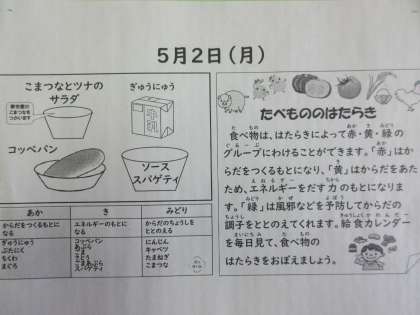 5月2日(月)
こまつなとツナの
サラダ
ぎゅうにゅう
牛乳
コッペパン
ソース
スパゲティ
あか
き
みどり
からだをつくるもとに
なる
エネルギーのもとに
なる
からだのちょうしを
ととのえる
ぎゅうにゅう
ぶたにく
ちくわ
まぐろ
コッペパン
あぶら
さとう
ごまあぶら
スパゲティ
にんじん
キャベツ
たまねぎ
こまつな
たべもののはたらき
食べ物は、はたらきによって赤・黄・緑の
グループにわけることができます。「赤」はか
らだをつくるもとになり、「黄」はからだをあた
ため、エネルギーをだす力のもとになりま
す。「緑」は風邪などを予防してからだの
調子をととのえてくれます。給食カレンダー
を毎日見て、食べ物の
はたらきをおぼえましょう。